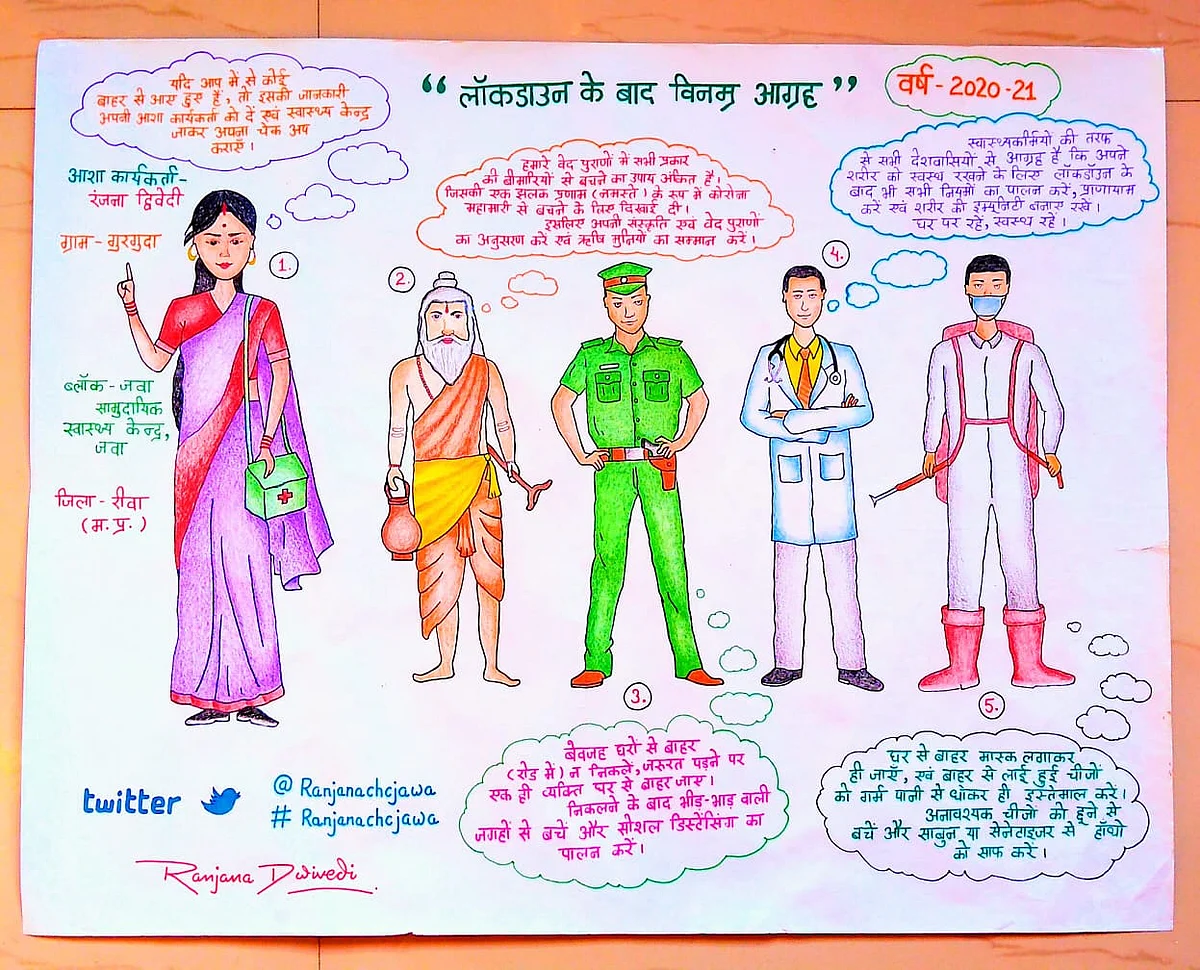 “ लॉकडाउन के बाद विनम्र आग्रह ”
वर्ष - 2020-21
यदि आप में से कोई
बाहर से आए हुए हैं, तो इसकी जानकारी
अपनी आशा कार्यकर्ता को दें एवं स्वास्थ्य केन्द्र
जाकर अपना चेक अप
कराएँ।
आशा कार्यकर्ता-
रंजना द्विवेदी
ग्राम - गुरगुदा
ब्लॉक - जवा
सामुदायिक
स्वास्थ्य केन्द्र,
जवा
जिला - रीवा
(म.प्र.)
1.
हमारे वेद पुराणों में सभी प्रकार
की बीमारियों से बचने का उपाय अंकित है।
जिसकी एक झलक प्रणाम (नमस्ते) के रूप में कोरोना
महामारी से बचने के लिए दिखाई दी।
इसलिए अपनी संस्कृति एवं वेद पुराणों
का अनुसरण करें एवं ऋषि मुनियों का सम्मान करें।
2.
स्वास्थ्यकर्मियों की तरफ
से सभी देशवासियों से आग्रह है कि अपने
शरीर को स्वस्थ रखने के लिए लॉकडाउन के
बाद भी सभी नियमों का पालन करें, प्राणायाम
करें एवं शरीर की इम्यूनिटी बनाए रखें।
घर पर रहें, स्वस्थ रहें।
4.
3.
बेवजह घरों से बाहर
(रोड में) न निकलें, जरुरत पड़ने पर
एक ही व्यक्ति घर से बाहर जाए।
निकलने के बाद भीड़-भाड़ वाली
जगहों से बचें और सोशल डिस्टेंसिंग का
पालन करें।
5.
घर से बाहर मास्क लगाकर
ही जाएँ, एवं बाहर से लाई हुई चीजों
को गर्म पानी से धोकर ही इस्तेमाल करें।
अनावश्यक चीजों को छूने से
बचें और साबुन या सेनेटाइजर से हाँथो
को साफ करें।
twitter @ Ranjanachcjawa
# Ranjanachcjawa
Ranjana Dwivedi